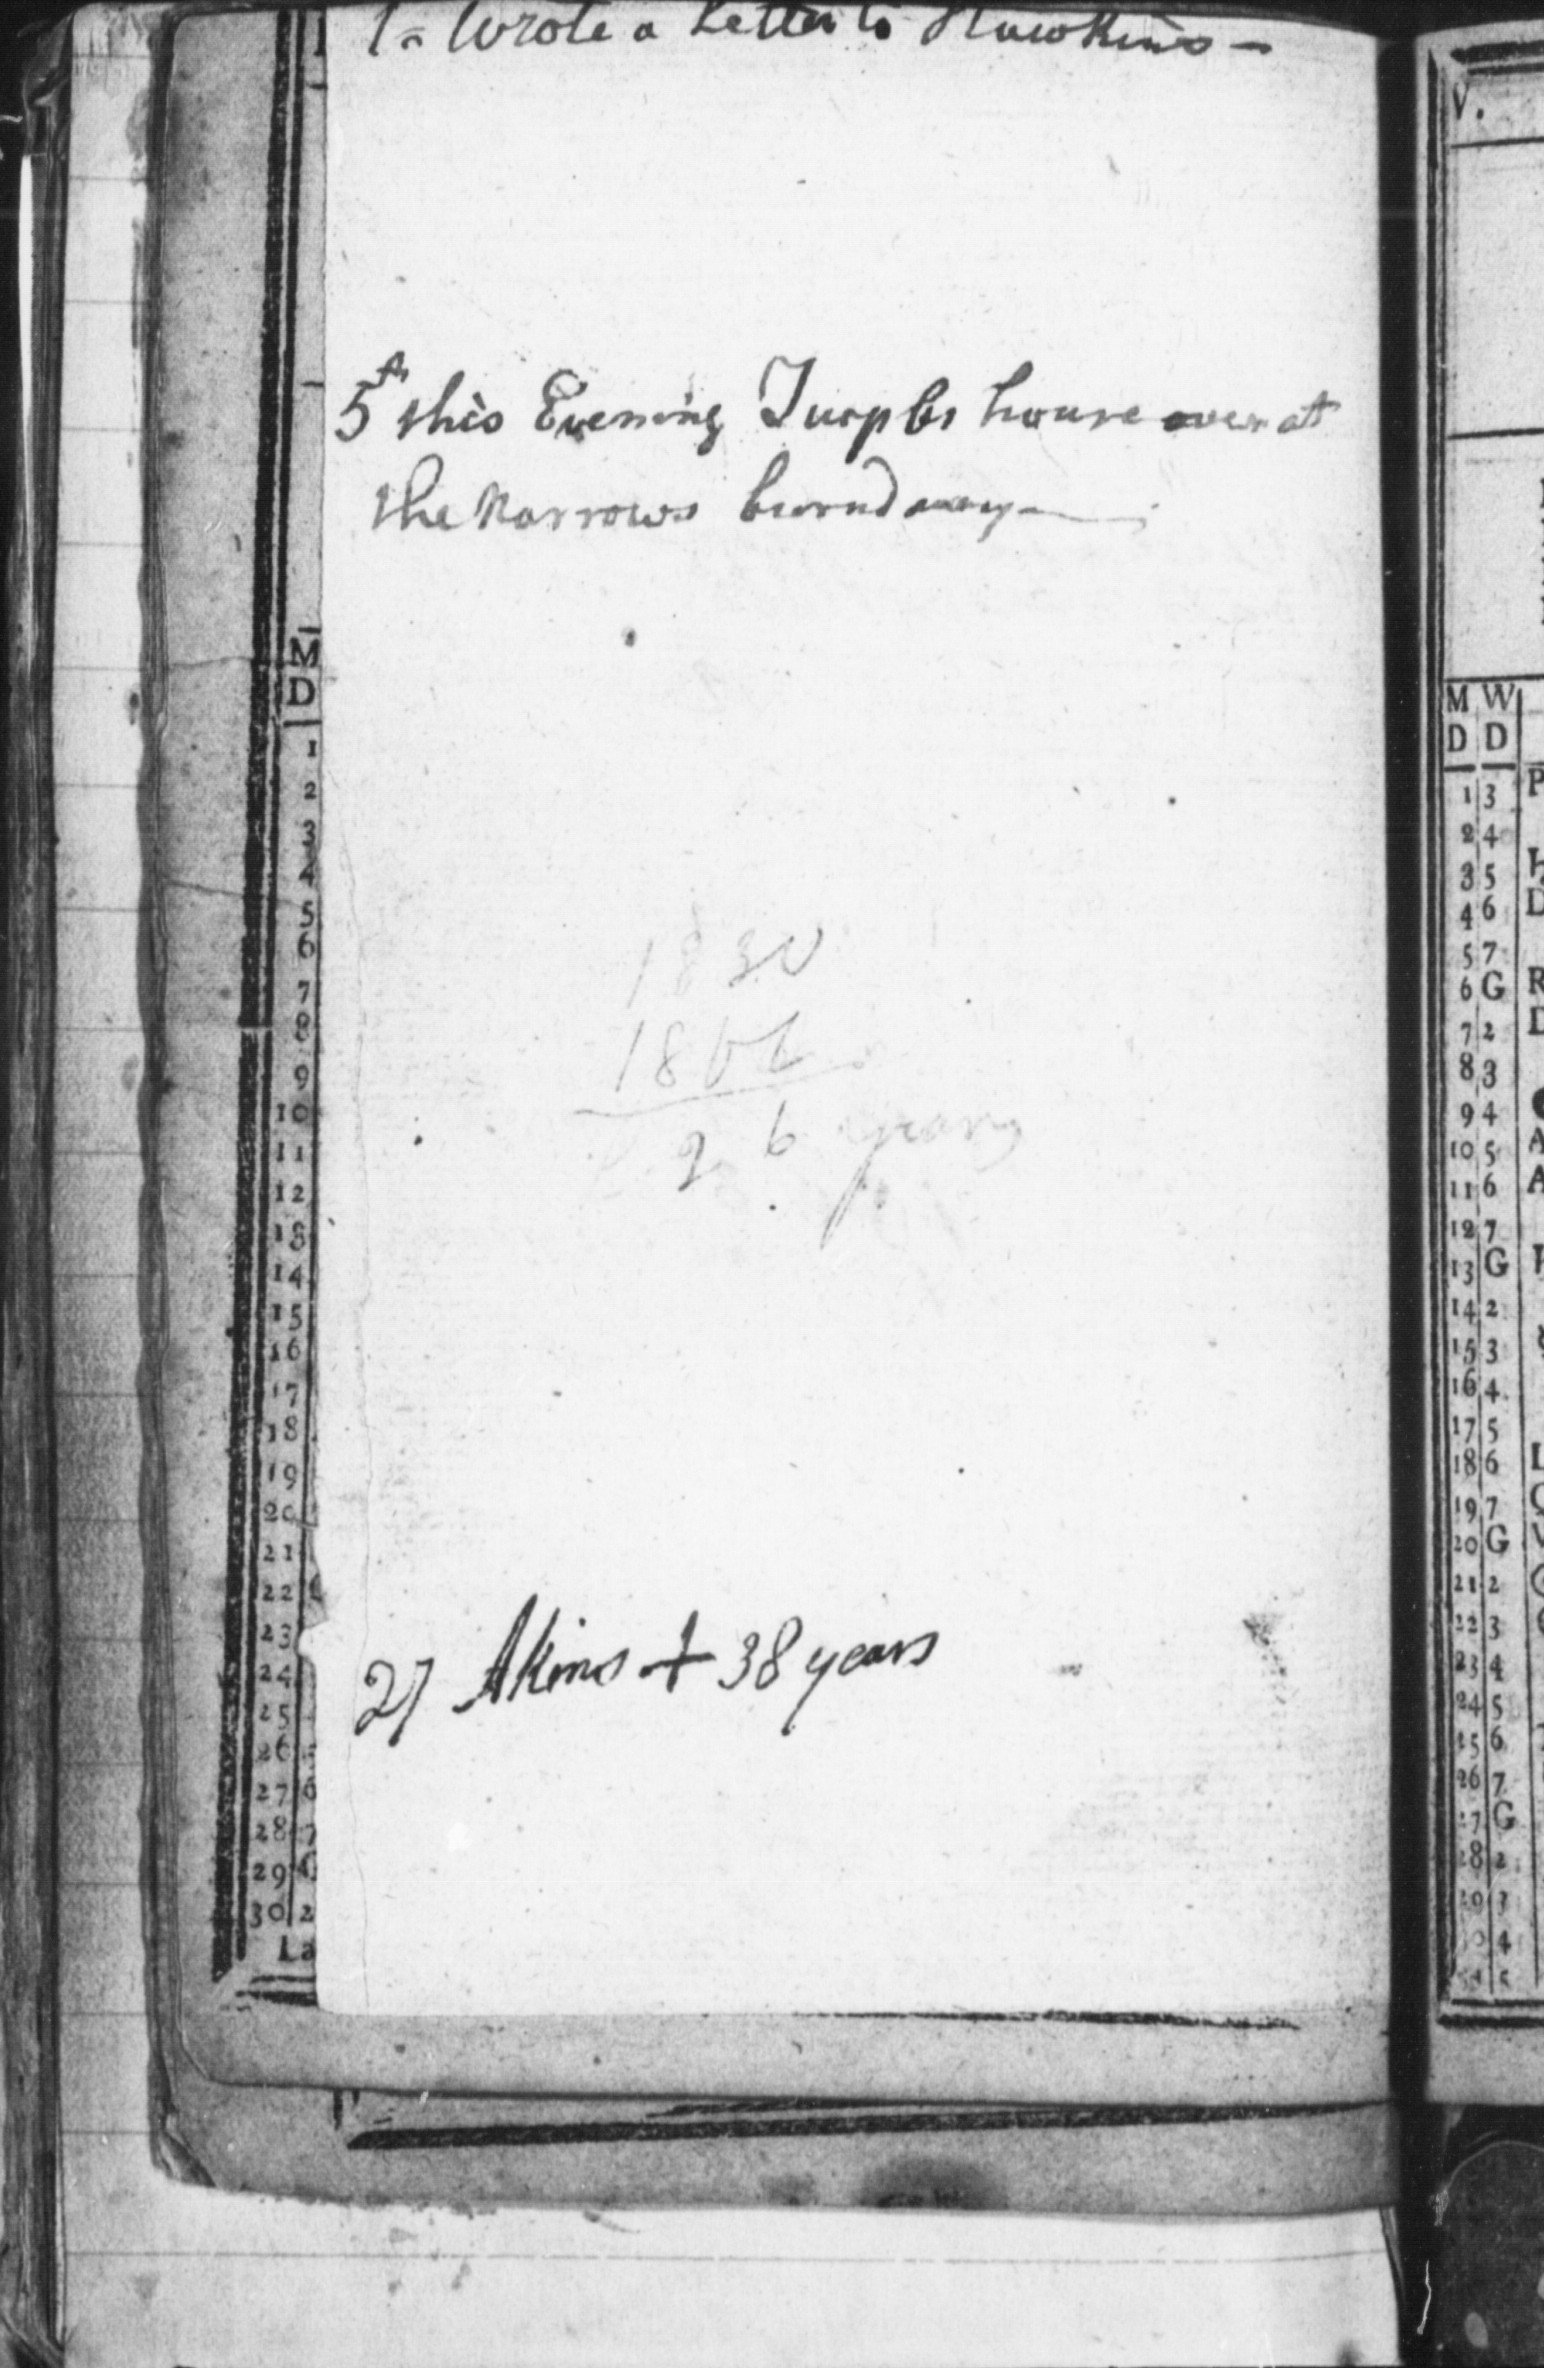 1 = Wrote a Letter to Hawkins —
5th this Evening house over at
the Narrows burnd away —
1830
1806
26 years
27 Akins + 38 years
M
D
1
2
3
4
5
6
7
8
9
10
11
12
13
14
15
16
17
18
19
20
21
22
23
24
25
26
27 6
28 7
29 G
30 2
La
V.
M W
D D
1 3 P
2 4
3 5 H
4 6 D
5 7
6 G R
7 2 D
8 3
9 4
10 5 A
11 6 A
12 7
13 G
14 2
15 3
16 4
17 5
18 6 L
19 7
20 G
21 2
22 3
23 4
24 5
25 6
26 7
27 G
28 2
29 3
30 4
31 5